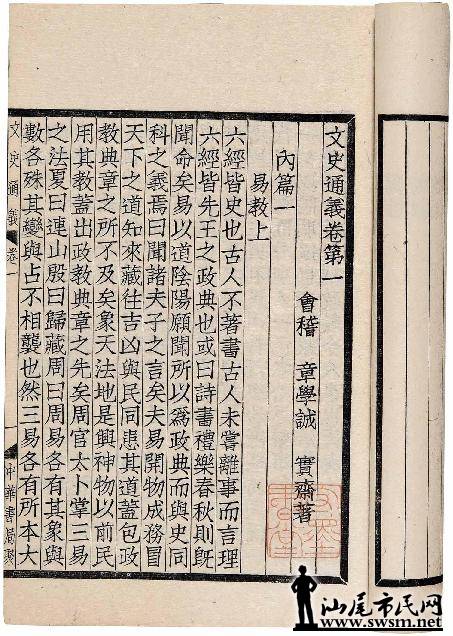 文史通義卷第一
會稽 章學誠 實齋著
內篇一
易教上
六經皆史也古人不著書古人未嘗離事而言理
六經皆先王之政典也或曰詩書禮樂春秋則既
聞命矣易以道陰陽願聞所以爲政典而與史同
科之義焉曰聞諸夫子之言矣夫易開物成務冒
天下之道知來藏往吉凶與民同患其道蓋包政
教典章之所不及矣象天法地是興神物以前民
用其教蓋出政教典章之先矣周官太卜掌三易
之法夏曰連山殷曰歸藏周曰周易各有其象與
數各殊其變與占不相襲也然三易各有所本大
文史通義 卷一 中華書局聚
汕尾市民网
www.swsm.net